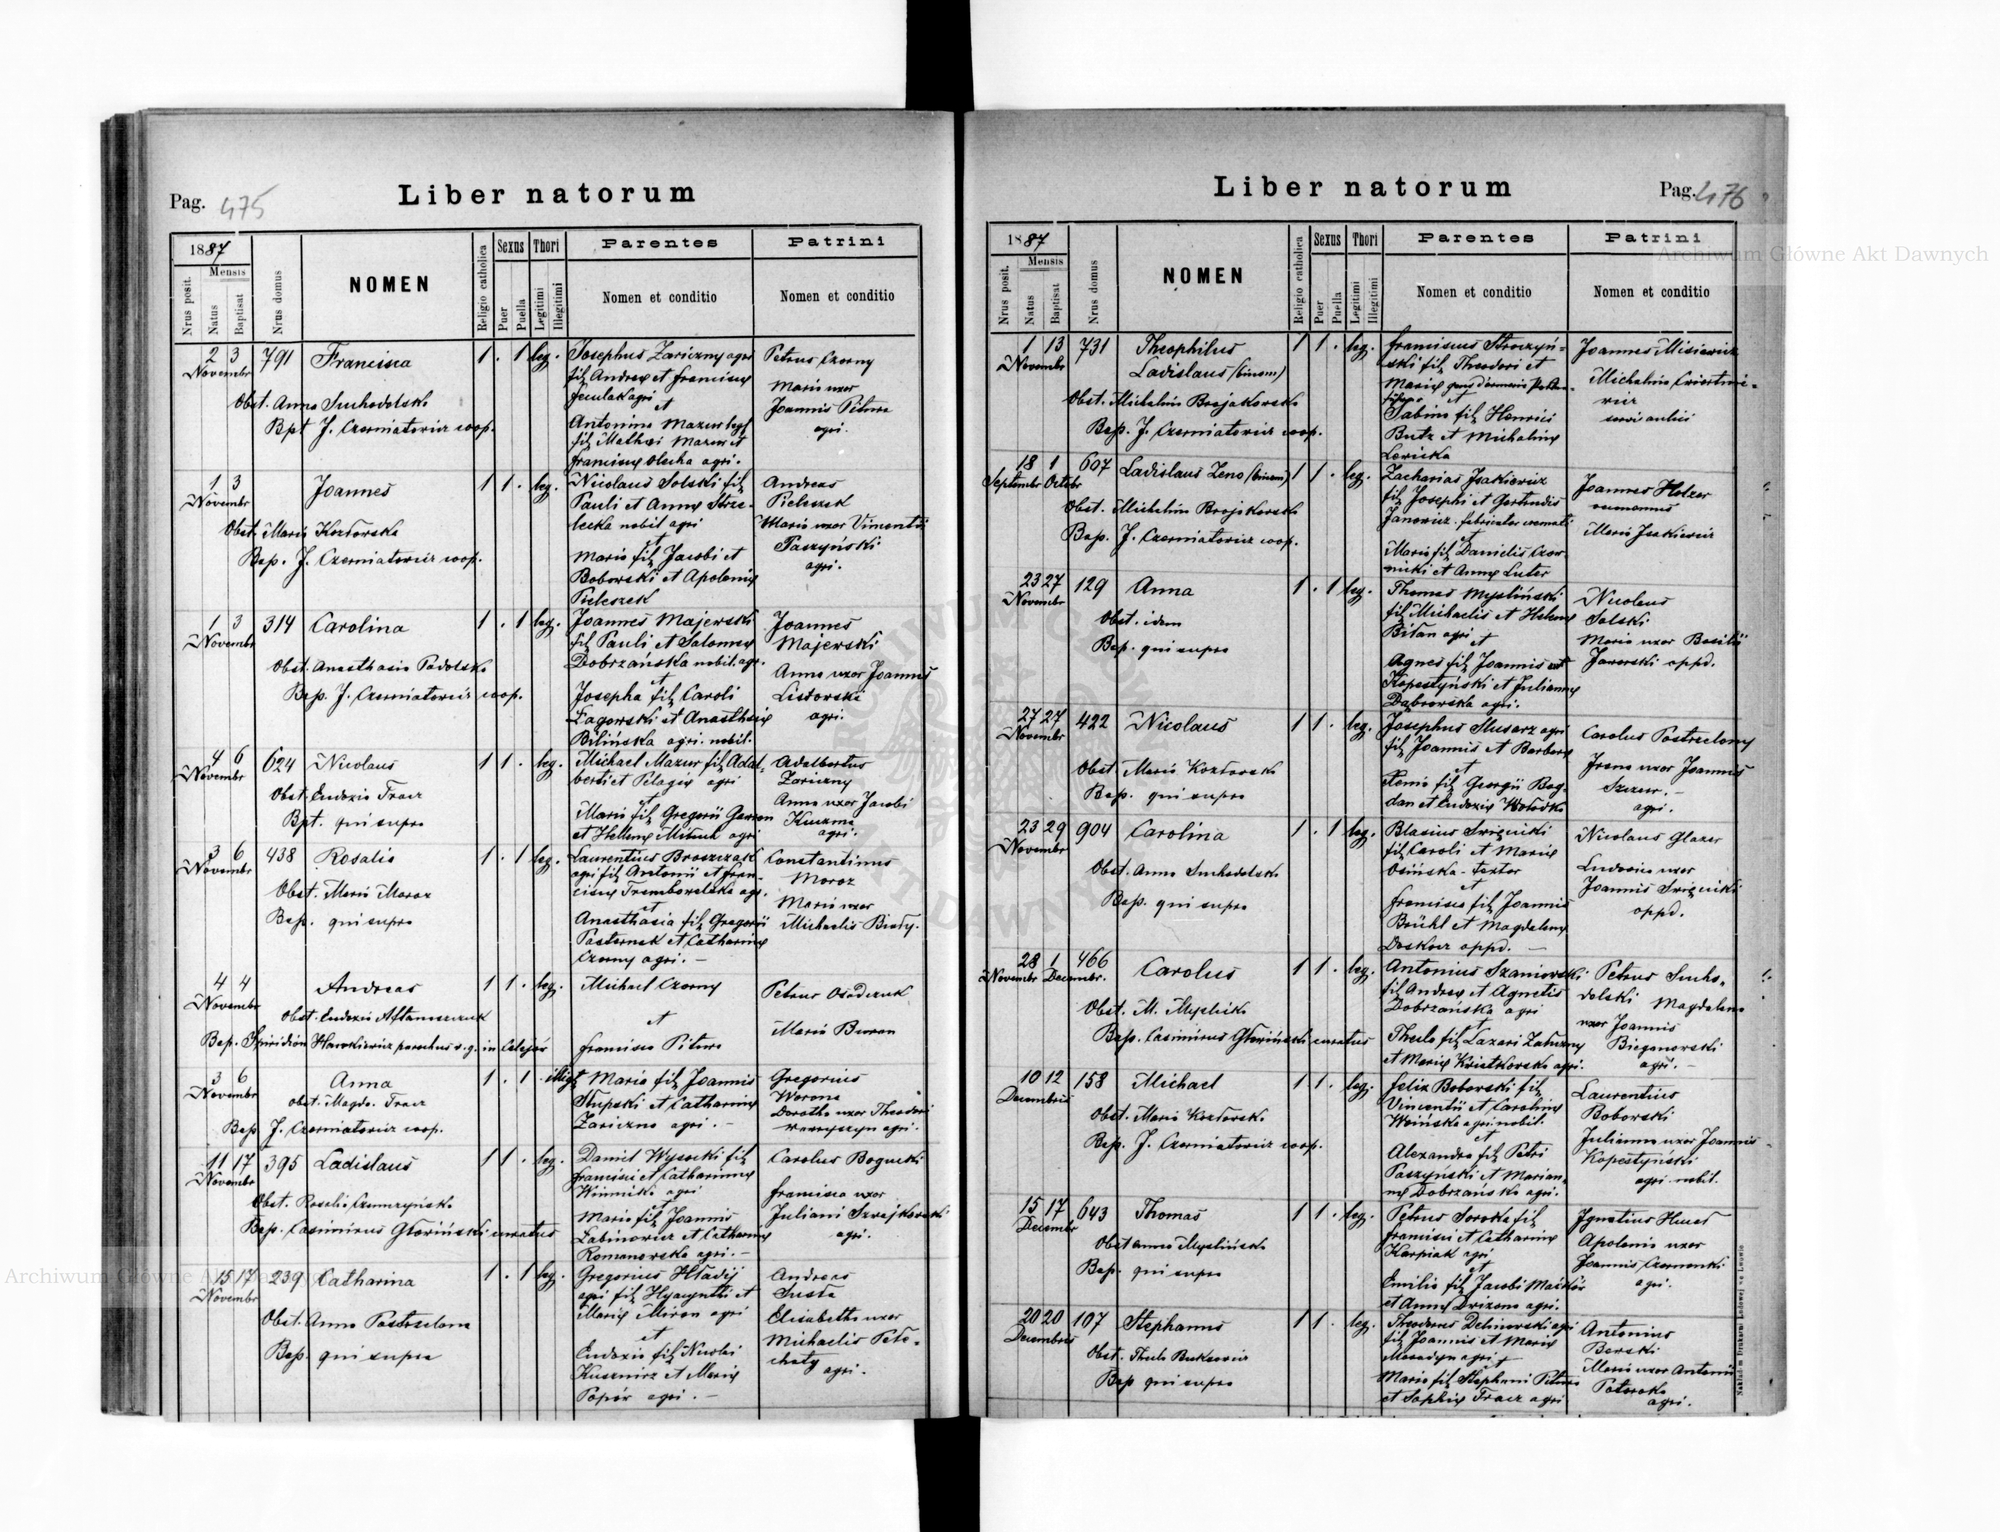 Pag. 475
Liber natorum
1887
Mensis
Nrus posit.
Natus
Baptisat
Nrus domus
NOMEN
Religio catholica
Sexus
Puer
Puella
Thori
Legitimi
Illegitimi
Parentes
Nomen et conditio
Patrini
Nomen et conditio
2 3 791 Francisca 1 . 1 leg.
Novembr
Obst. Anna Suchodolska
Bpt J. Czerniatowicz coop.
Josephus Zariczny agri
fil Andreae et Franciscae
agri
et
Antonina Mazur
fil Mathaei Mazur et
Franciscae Olecha agri.
Petrus Czorny
Maria uxor
Joannis Pitura
agri.
1 3 Joannes 1 1 . leg.
Novembr
Obst. Maria Kozłowska
Bap. J. Czerniatowicz coop.
Nicolaus Solski fil
Pauli et Annae Strze-
lecka nobil agri
et
Maria fil Jacobi et
Boborski et Apoloniae
Pieleszek
Andreas
Pieleszek
Maria uxor Vincentii
Paszyński
agri.
1 3 314 Carolina 1 . 1 leg.
Novembr
Obst. Anasthasia Podolska
Bap. J. Czerniatowicz coop.
Joannes Majewski
fil Pauli et Salomeae
Dobrzańska nobil. agr.
et
Josepha fil Caroli
Zagorski et Anasthasiae
Bilińska agri. nobil.
Joannes
Majewski
Anna uxor Joannis
Listowski
agri.
4 6 624 Nicolaus 1 1 . leg.
Novembr
Obst. Eudoxia Tracz
Bpt. qui supra
Michael Mazur fil Adal-
berti et Pelagiae agri
et
Maria fil Gregorii
et Hellenae agri
Adalbertus
Zariczny
Anna uxor Jacobi
Kuczma
agri.
3 6 438 Rosalia 1 . 1 leg.
Novembr
Obst. Maria Moroz
Bap. qui supra
Laurentius Broszczak
agri fil Antonii et Fran-
ciscae Trembowelska agr.
et
Anasthasia fil Gregorii
Pasternak et Catharinae
Czorny agri. —
Constantinus
Moroz
Maria uxor
Michaelis
4 4 Andreas 1 1 . leg.
Novembr
Obst. Eudoxia
Bap. Spiridion parochus r. g. in
Michael Czorny
et
Francisca Pitura
Petrus Osadczuk
Maria
3 6 Anna 1 . 1 . illegt
Novembr
Obst. Magda. Tracz
Bap J. Czerniatowicz coop.
Maria fil Joannis
Słupski et Catharinae
Zariczna agri. —
Gregorius
Worona
Dorotha uxor Theodori
agri.
11 17 395 Ladislaus 1 1 . leg.
Novembr
Obst. Rosalia
Bap. Casimirus Głowiński curatus
Daniel Wysocki fil
Francisci et Catharinae
Winnicki agri
et
Maria fil Joannis
Łabinowicz et Catharinae
Romanowska agri. —
Carolus Bogucki
Francisca uxor
Juliani
agri.
15 17 239 Catharina 1 . 1 leg.
Novembr
Obst. Anna Postrzelona
Bap. qui supra
Gregorius Hładij
agri fil Hyacynthi et
Mariae Miron agri
et
Eudoxia fil Nicolai
Kusznirz et Mariae
agri. —
Andreas
Susta
Elisabetha uxor
Michaelis Pele-
chaty
agri.
Liber natorum
Pag. 476
1887
Mensis
Nrus posit.
Natus
Baptisat
Nrus domus
NOMEN
Religio catholica
Sexus
Puer
Puella
Thori
Legitimi
Illegitimi
Parentes
Nomen et conditio
Patrini
Nomen et conditio
1 13 731 Theophilus 1 1 . leg.
Novembr
Ladislaus (binom)
Obst. Michalina Brojakowska
Bap. J. Czerniatowicz coop.
Franciscus Stroczyń-
ski fil Theodori et
Mariae
et
Sabina fil Henrici
Butz et Michalinae
Lewicka
Joannes Misiewicz
Michalina
18 1 607 Ladislaus Zeno (binom) 1 1 . leg.
Septembr Octobr
Obst. Michalina Brojakowska
Bap. J. Czerniatowicz coop.
Zacharias Isakiewicz
fil Josephi et Gertrudis
Janowicz . fabricator
et
Maria fil Danielis Czer-
nicki et Annae Luter
Joannes Holzer
Maria Isakiewicz
23 27 129 Anna 1 . 1 leg.
Novembr
Obst. idem
Bap. qui supra
Thomas Mysliński
fil Michaelis et Helenae
Bilan agri
et
Agnes fil Joannis
Kopestyński et Juliannae
Dąbrowska agri.
Nicolaus
Solski
Maria uxor Basilii
Jaworski oppd.
27 27 422 Nicolaus 1 1 . leg.
Novembr
Obst. Maria Kozłowska
Bap. qui supra
Josephus Slusarz agri
fil Joannis et Barbarae
et
Xenia fil Georgii Bog-
dan et Eudoxiae Wołodko
Carolus Postrzelony
Irena uxor Joannis
Szczur. —
agri.
23 29 904 Carolina 1 . 1 leg.
Novembr
Obst. Anna Suchodolska
Bap. qui supra
Blasius
fil Caroli et Mariae
Osińska - textor
et
Francisca fil Joannis
Brühl et Magdalenae
oppd. —
Nicolaus Glazer
Ludovica uxor
Joannis
oppd.
28 1 466 Carolus 1 1 . leg.
Novembr Decembr.
Obst. M. Myslicka
Bap. Casimirus Głowiński curatus
Antonius Szaniawski
fil Andreae et Agnetis
Dobrzańska agri
et
Thecla fil Lazari
et Mariae Kwiatkowska agri.
Petrus Sucho-
dolski Magdalena
uxor Joannis
Bieganowski
agri. —
10 12 158 Michael 1 1 . leg.
Decembris
Obst. Maria Kozłowska
Bap. J. Czerniatowicz coop.
Felix Boborski fil
Vincentii et Carolinae
Woińska agri. nobil.
et
Alexandra fil Petri
Paszyński et Marian-
nae Dobrzańska agri.
Laurentius
Boborski
Julianna uxor Joannis
Kopestyński
agri nobil.
15 17 643 Thomas 1 1 . leg.
Decembr
Obst Anna Myslińska
Bap. qui supra
Petrus Soroka fil
Francisci et Catharinae
Karpiak agri
et
Emilia fil Jacobi
et Annae agri.
Ignatius
Apolonia uxor
Joannis Czarnecki
agri.
20 20 107 Stephanus 1 1 . leg.
Decembris
Obst. Thecla
Bap qui supra
Theodorus Delinowski agri
fil Joannis et Mariae
agri
et
Maria fil Stephani Pitura
et Sophiae Tracz agri
Antonius
Berski
Maria uxor Antonii
Patoroka
agri.
Nakładem Drukarni Ludowej we Lwowie
Archiwum Główne Akt Dawnych
Archiwum Główne Akt Dawnych